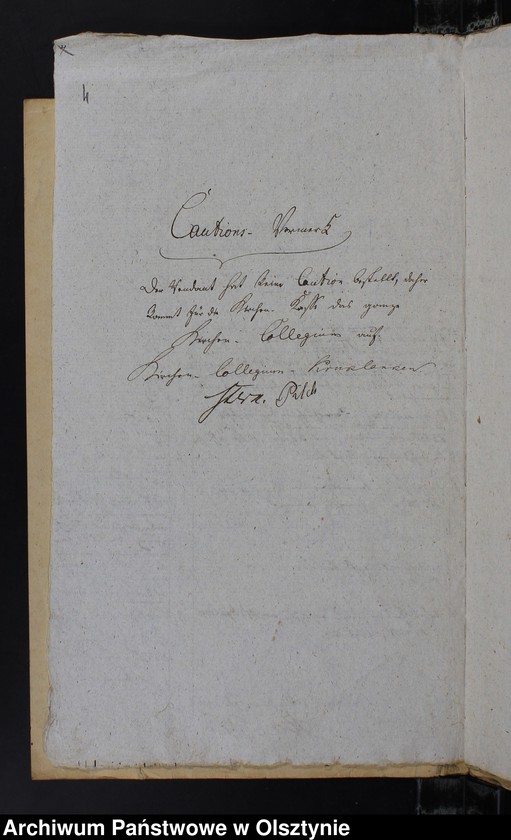 4
Cautions-Vermerk
Der Rendant hat keine Caution bestellt, daher
kommt für die Kirchen-Kasse das ganze
Kirchen-Collegium auf.
Kirchen-Collegium-Kruklanken
Pilch
Archiwum Państwowe w Olsztynie